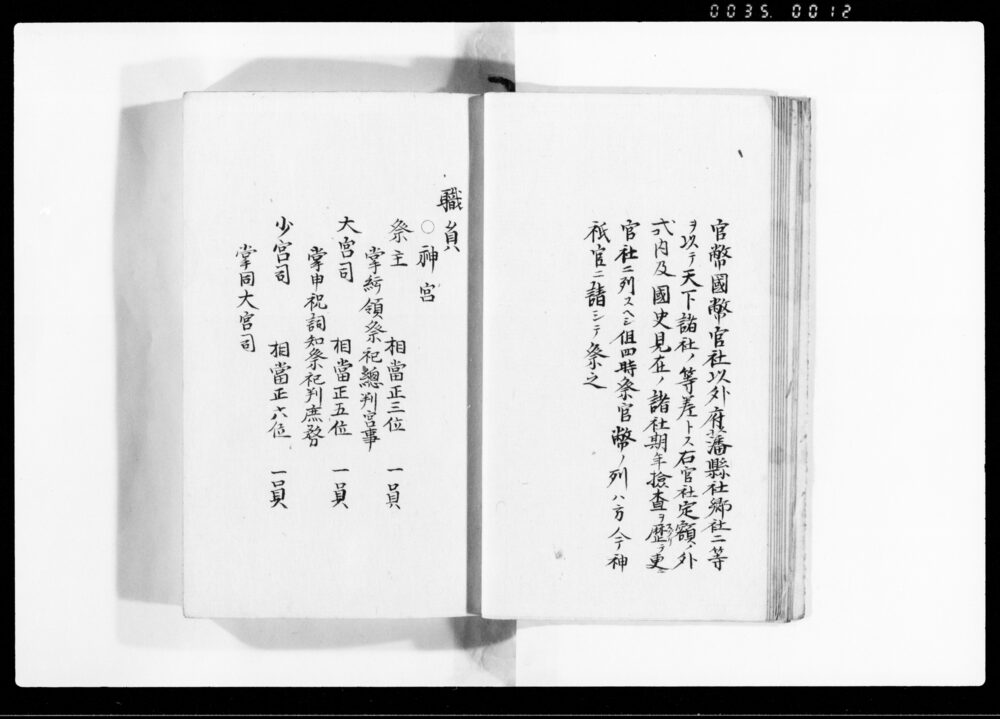 0035.0012
官幣國幣官社以外府藩縣社郷社二等
ヲ以テ天下諸社ノ等差トス右官社定額ノ外
式内及國史見在ノ諸社期年撿査ヲ歴テ更ニ
官社ニ列スヘシ但四時祭官幣ノ列ハ方今神
祇官ニ諸シテ祭之
職員
○神宮
祭主 相當正三位 一員
掌 領祭祀總判宮事
大宮司 相當正五位 一員
掌申祝詞知祭祀判庶務
少宮司 相當正六位 一員
掌同大宮司